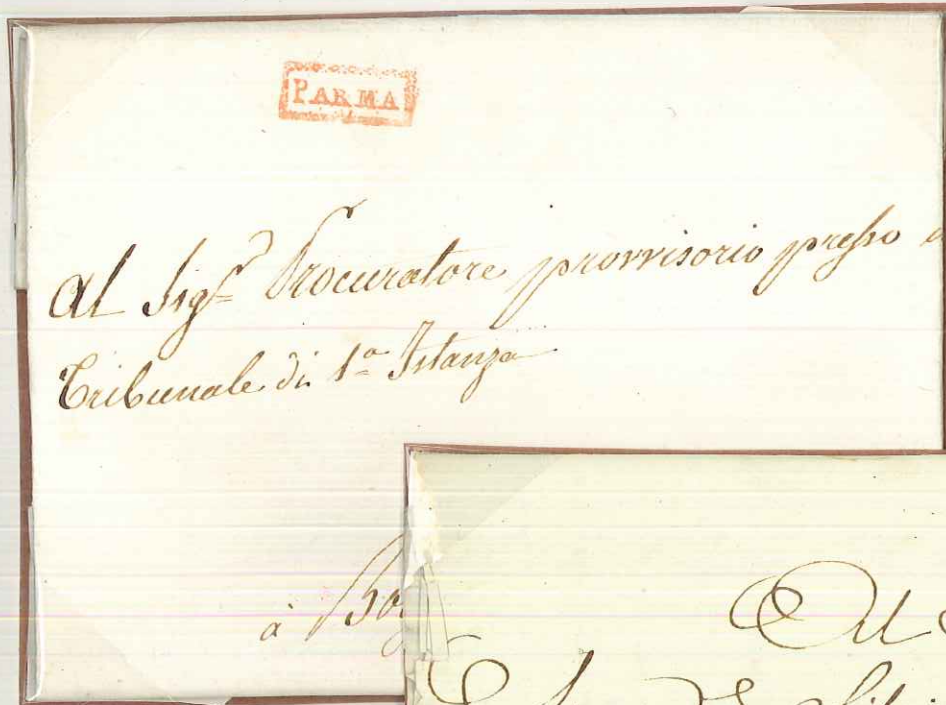 PARMA
Al Sig.r Procuratore provvisorio presso
Tribunale di 1.a Istanza
à
Al